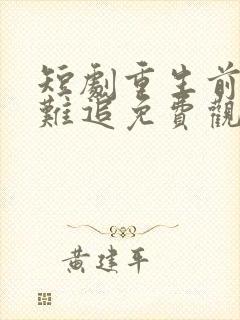 短劇重生前
難追免費觀
黃建平